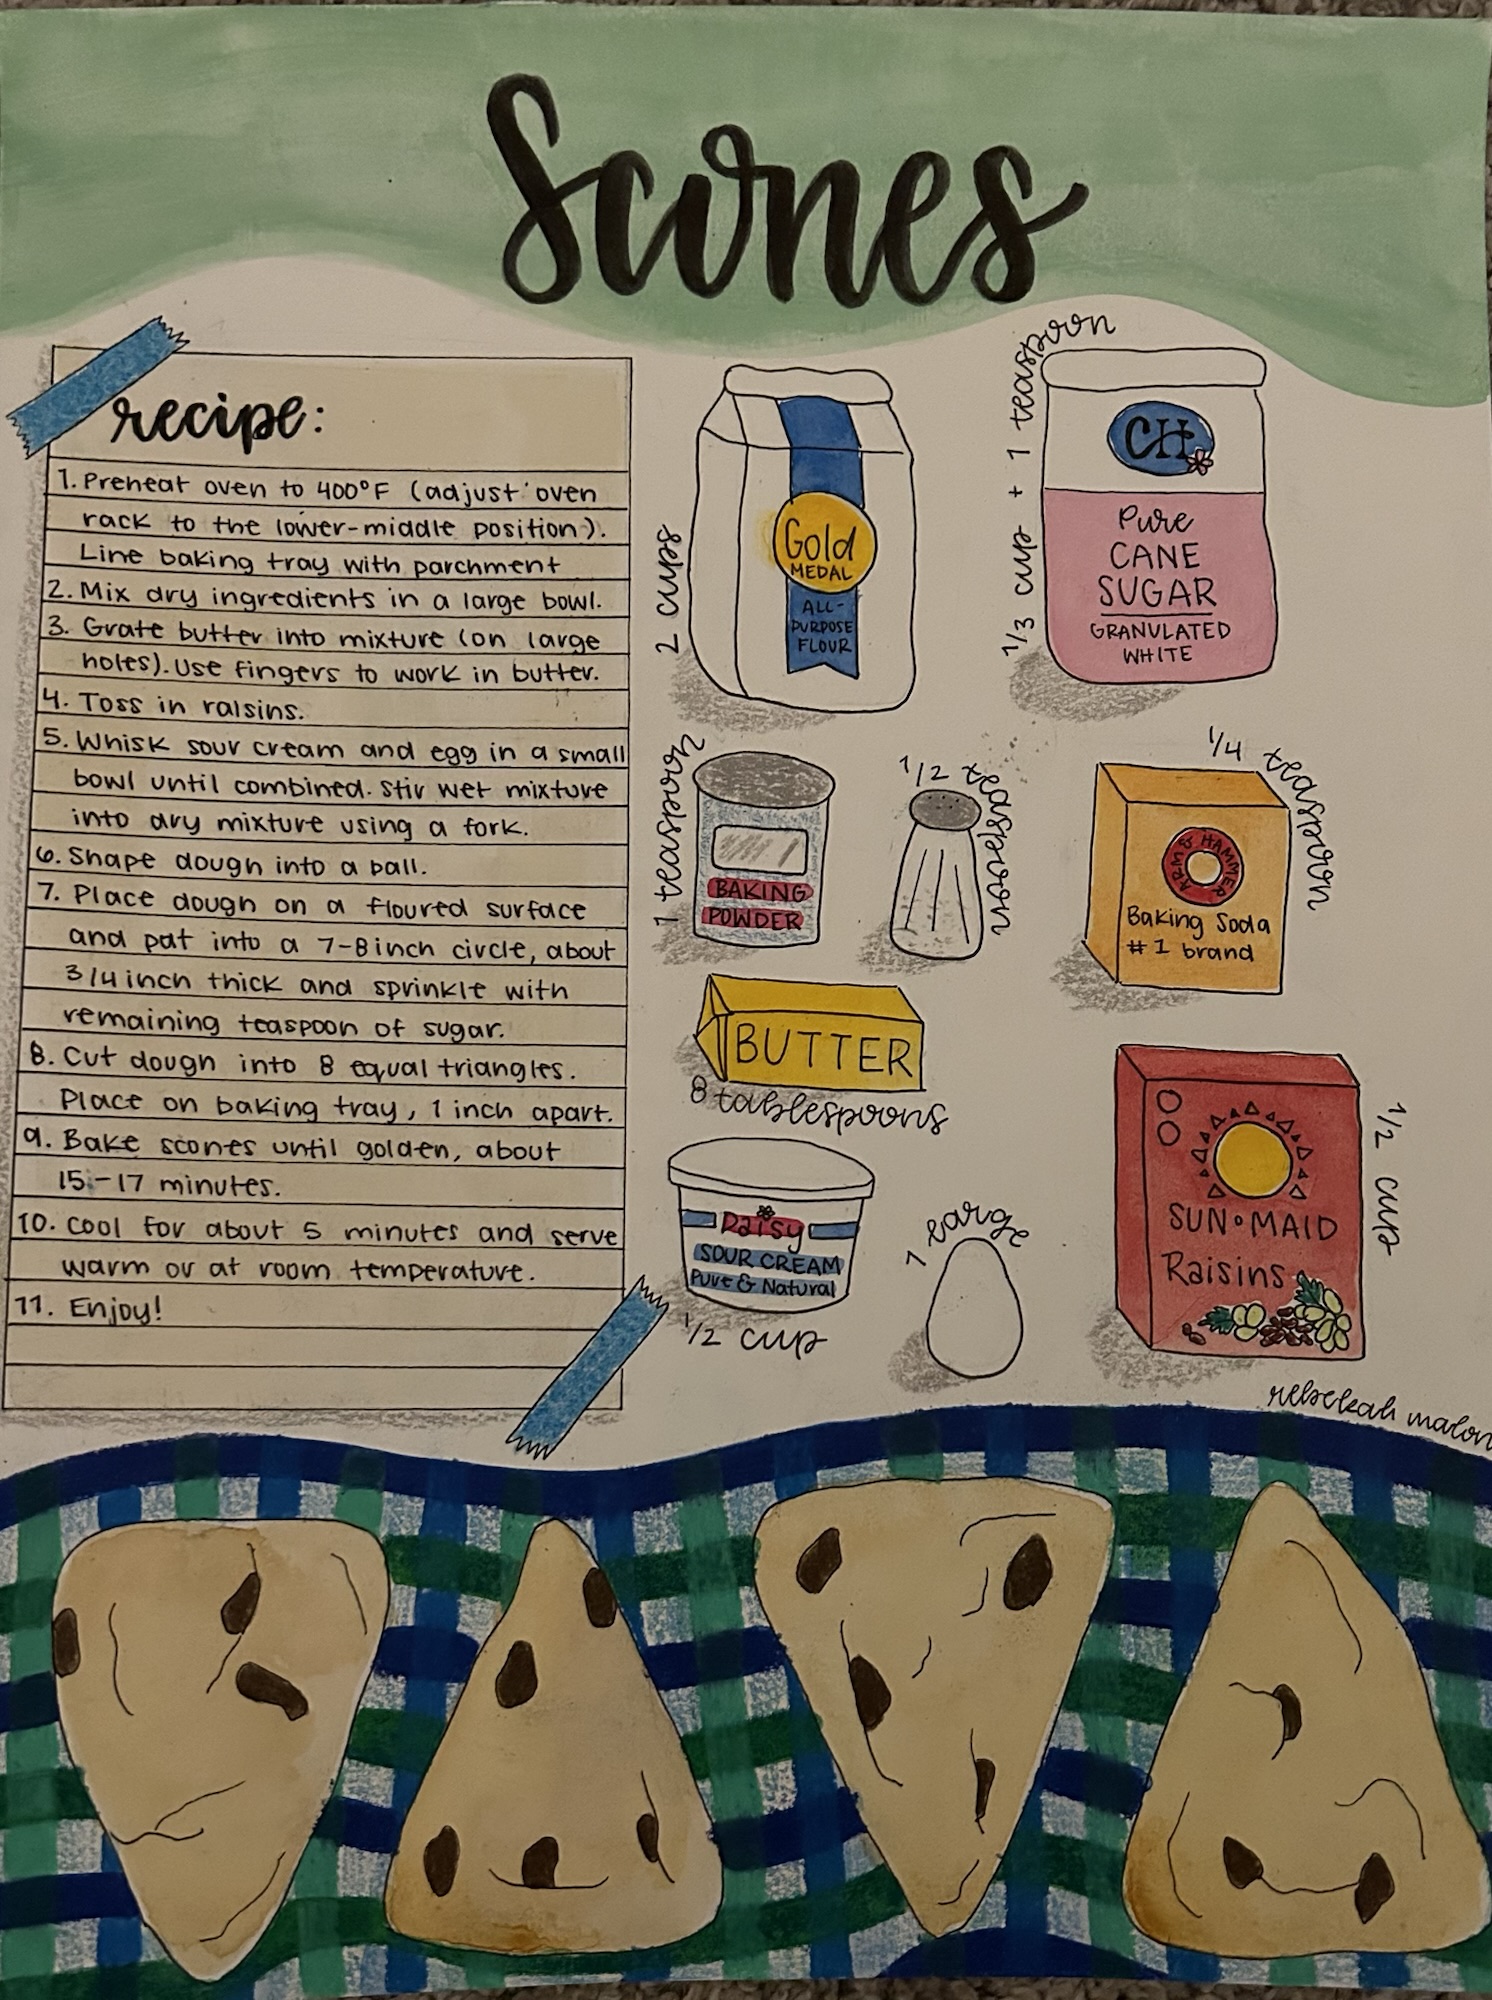 Scones
recipe:
1. Preheat oven to 400°F (adjust oven
rack to the lower-middle position).
Line baking tray with parchment
2. Mix dry ingredients in a large bowl.
3. Grate butter into mixture (on large
holes). Use fingers to work in butter.
4. Toss in raisins.
5. Whisk sour cream and egg in a small
bowl until combined. Stir wet mixture
into dry mixture using a fork.
6. Shape dough into a ball.
7. Place dough on a floured surface
and pat into a 7-8 inch circle, about
3/4 inch thick and sprinkle with
remaining teaspoon of sugar.
8. Cut dough into 8 equal triangles.
Place on baking tray, 1 inch apart.
9. Bake scones until golden, about
15-17 minutes.
10. Cool for about 5 minutes and serve
warm or at room temperature.
11. Enjoy!
2 cups
Gold
MEDAL
ALL-
PURPOSE
FLOUR
1/3 cup + 1 teaspoon
CH
Pure
CANE
SUGAR
GRANULATED
WHITE
1 teaspoon
BAKING
POWDER
1/2 teaspoon
1/4 teaspoon
ARM & HAMMER
Baking Soda
#1 brand
BUTTER
8 tablespoons
Daisy
SOUR CREAM
Pure & Natural
1/2 cup
1 large
SUN•MAID
Raisins
1/2 cup
rebekah malon